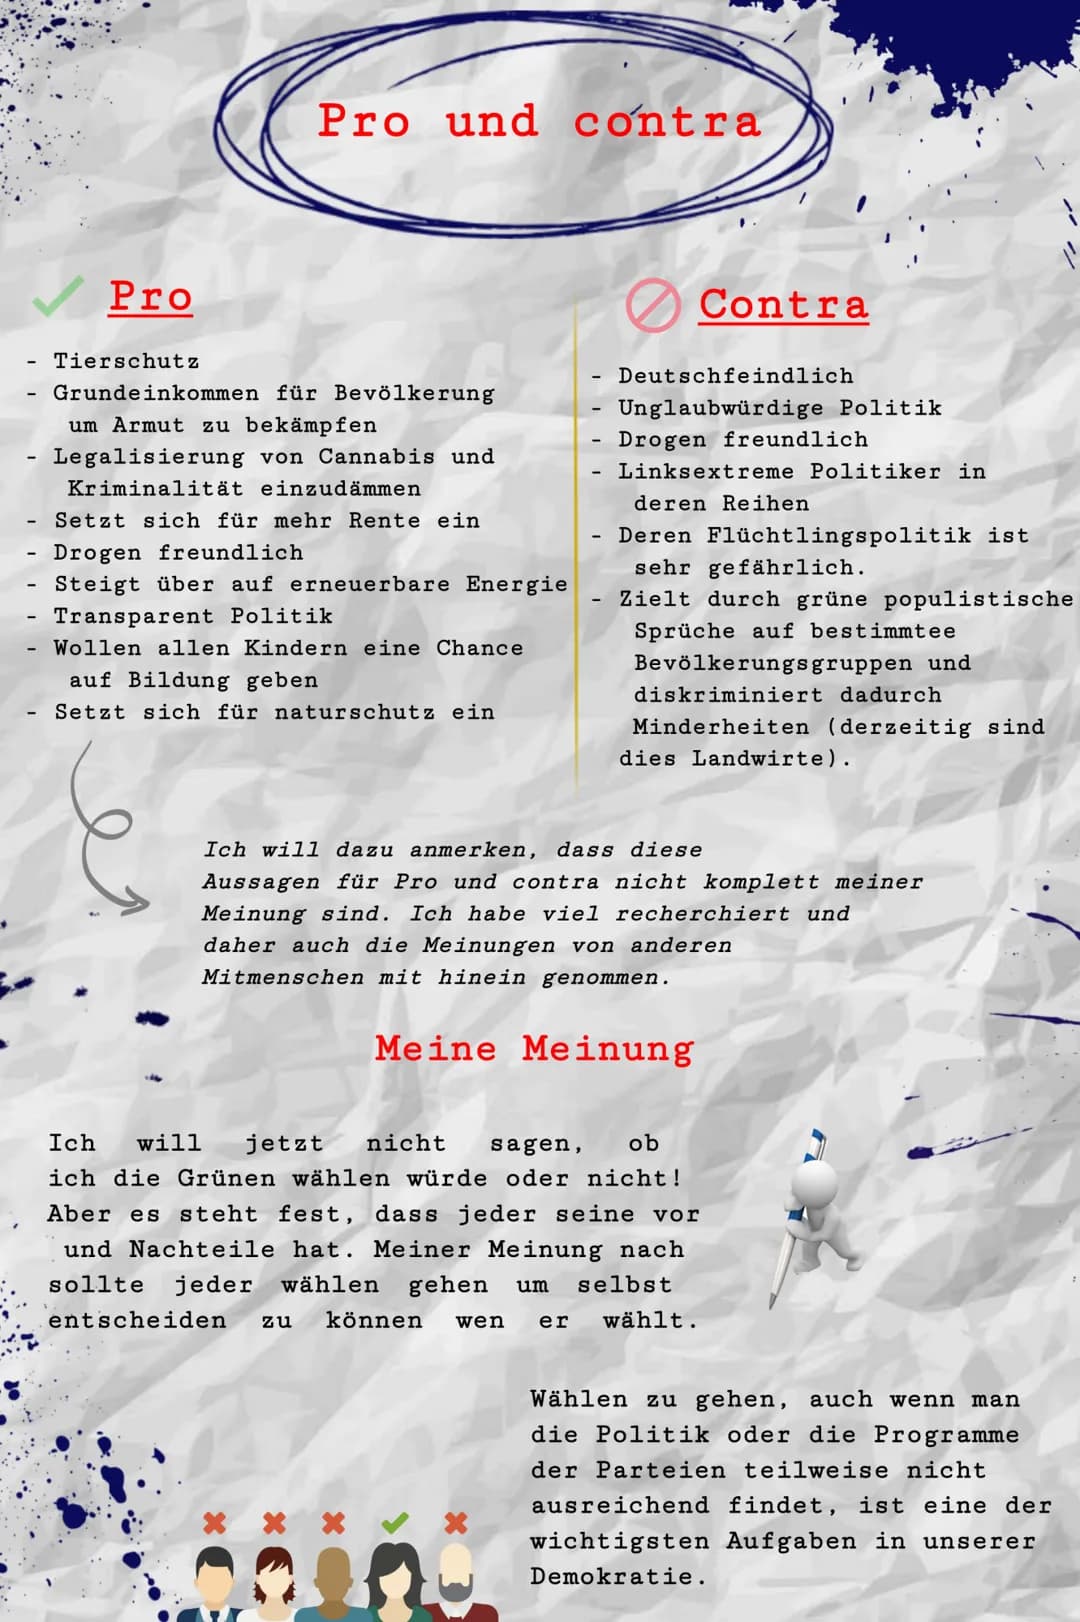 Pro und contra
Pro
- Tierschutz
- Grundeinkommen für Bevölkerung
um Armut zu bekämpfen
- Legalisierung von Cannabis und
Kriminalität einzudämmen
- Setzt sich für mehr Rente ein
- Drogen freundlich
- Steigt über auf erneuerbare Energie
- Transparent Politik
- Wollen allen Kindern eine Chance
auf Bildung geben
- Setzt sich für naturschutz ein
Contra
- Deutschfeindlich
- Unglaubwürdige Politik
- Drogen freundlich
- Linksextreme Politiker in
deren Reihen
- Deren Flüchtlingspolitik ist
sehr gefährlich.
- Zielt durch grüne populistische
Sprüche auf bestimmtee
Bevölkerungsgruppen und
diskriminiert dadurch
Minderheiten (derzeitig sind
dies Landwirte).
Ich will dazu anmerken, dass diese
Aussagen für Pro und contra nicht komplett meiner
Meinung sind. Ich habe viel recherchiert und
daher auch die Meinungen von anderen
Mitmenschen mit hinein genommen.
Meine Meinung
Ich will jetzt nicht sagen, ob
ich die Grünen wählen würde oder nicht!
Aber es steht fest, dass jeder seine vor
und Nachteile hat. Meiner Meinung nach
sollte jeder wählen gehen um selbst
entscheiden zu können wen er wählt.
Wählen zu gehen, auch wenn man
die Politik oder die Programme
der Parteien teilweise nicht
ausreichend findet, ist eine der
wichtigsten Aufgaben in unserer
Demokratie.